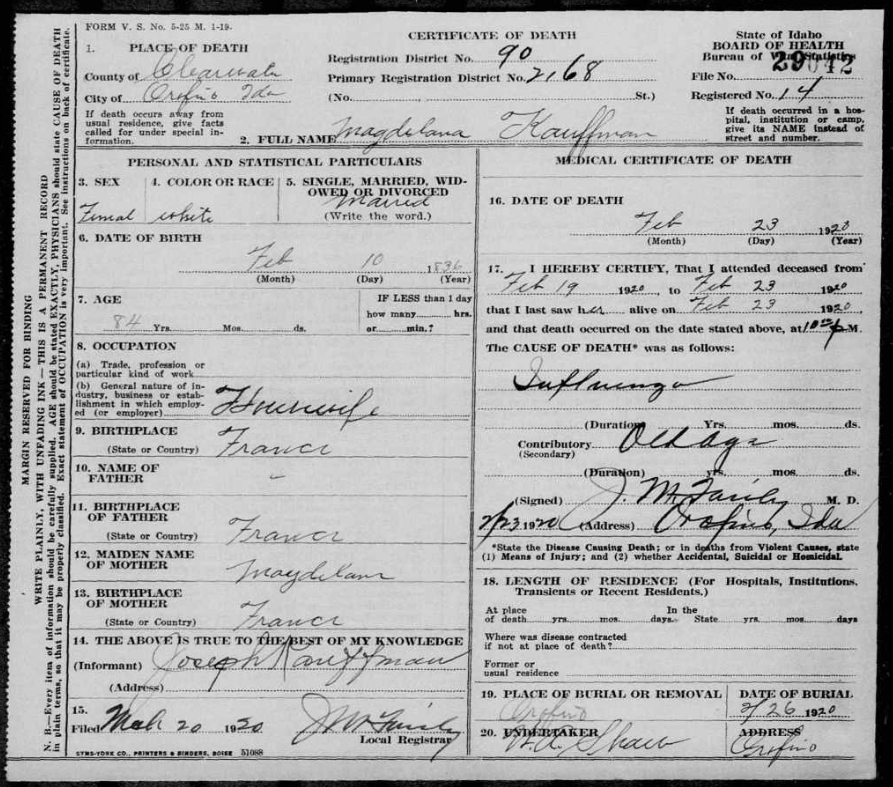 FORM V. S. No. 5-25 M. 1-19.
CERTIFICATE OF DEATH
State of Idaho
BOARD OF HEALTH
Bureau of Vital Statistics
1. PLACE OF DEATH
County of Clearwater
City of Orofino Ida
If death occurs away from usual residence, give facts called for under special information.
Registration District No. 90
Primary Registration District No. 2168
(No. , St.)
File No. 29042
Registered No. 14
If death occurred in a hospital, institution or camp, give its NAME instead of street and number.
2. FULL NAME Magdelana Kauffman
PERSONAL AND STATISTICAL PARTICULARS
3. SEX
Femal
4. COLOR OR RACE
white
5. SINGLE, MARRIED, WIDOWED OR DIVORCED
Married
(Write the word.)
6. DATE OF BIRTH
Feb 10 1836
(Month) (Day) (Year)
7. AGE
84 Yrs. Mos. ds.
IF LESS than 1 day
how many hrs.
or min.?
8. OCCUPATION
(a) Trade, profession or particular kind of work
(b) General nature of industry, business or establishment in which employed (or employer) Housewife
9. BIRTHPLACE
(State or Country) France
10. NAME OF FATHER -
11. BIRTHPLACE OF FATHER
(State or Country) France
12. MAIDEN NAME OF MOTHER Magdelana
13. BIRTHPLACE OF MOTHER
(State or Country) France
14. THE ABOVE IS TRUE TO THE BEST OF MY KNOWLEDGE
(Informant) Joseph Kauffman
(Address)
15.
Filed Mch 20 1920 J M Fairly
Local Registrar
SYMS-YORK CO., PRINTERS & BINDERS, BOISE 51088
MEDICAL CERTIFICATE OF DEATH
16. DATE OF DEATH
Feb 23 1920
(Month) (Day) (Year)
17. I HEREBY CERTIFY, That I attended deceased from
Feb 19 1920, to Feb 23 1920
that I last saw her alive on Feb 23 1920,
and that death occurred on the date stated above, at 10 P M.
The CAUSE OF DEATH* was as follows:
Influenza
(Duration) Yrs. mos. ds.
Contributory Old Age
(Secondary)
(Duration) yrs. mos. ds.
(Signed) J. M. Fairly M. D.
2/23 1920 (Address) Orofino, Ida
*State the Disease Causing Death; or in deaths from Violent Causes, state (1) Means of Injury; and (2) whether Accidental, Suicidal or Homicidal.
18. LENGTH OF RESIDENCE (For Hospitals, Institutions, Transients or Recent Residents.)
At place of death yrs. mos. days. In the State yrs. mos. days
Where was disease contracted if not at place of death?
Former or usual residence
19. PLACE OF BURIAL OR REMOVAL
Orofino
DATE OF BURIAL
2/26 1920
20. UNDERTAKER
Shaw
ADDRESS
Orofino
MARGIN RESERVED FOR BINDING
WRITE PLAINLY, WITH UNFADING INK — THIS IS A PERMANENT RECORD
N. B.—Every item of information should be carefully supplied. AGE should be stated EXACTLY, PHYSICIANS should state CAUSE OF DEATH
in plain terms, so that it may be properly classified. Exact statement of OCCUPATION is very important. See instructions on back of certificate.